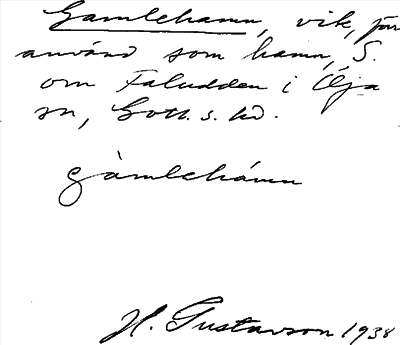 Gamlehamn, vik, för
använd som hamn, S.
om Faludden i Öja
sn, Gotl. s. hd.
gàmlehámn
H. Gustavson 1938